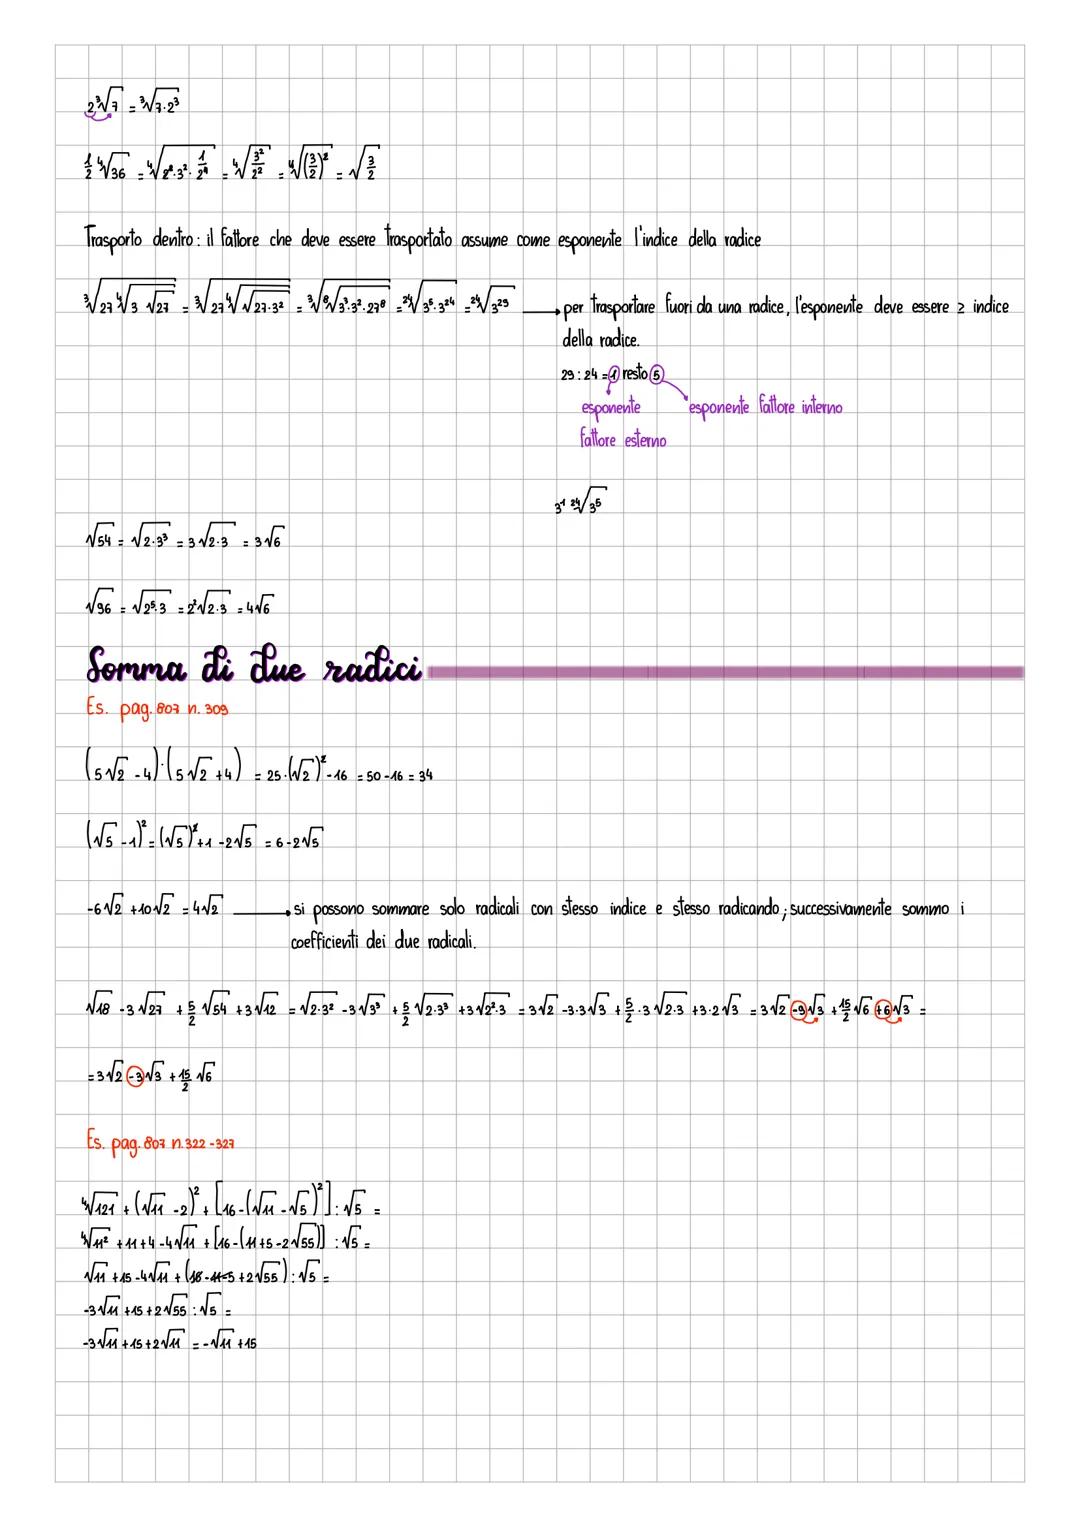 2∛7 = ∛(7·2³)
½ ⁴√36 = ⁴√(2²·3²·1/2⁴) = ⁴√(3²/2²) = ⁴√((3/2)²) = √(3/2)
Trasporto dentro: il fattore che deve essere trasportato assume come esponente l'indice della radice
∛(27 ⁴√(3 √27)) = ∛(27 ⁴√(√(27·3²))) = ∛(⁸√(3³·3²·27⁸)) = ²⁴√(3⁵·3²⁴) = ²⁴√(3²⁹) → per trasportare fuori da una radice, l'esponente deve essere ≥ indice
della radice.
29 : 24 = 1 resto 5
esponente esponente fattore interno
fattore esterno
3¹ ²⁴√(3⁵)
√54 = √(2·3³) = 3√(2·3) = 3√6
√96 = √(2⁵·3) = 2²√(2·3) = 4√6
Somma di due radici
Es. pag. 807 n. 309
(5√2 - 4)·(5√2 + 4) = 25·(√2)² - 16 = 50 - 16 = 34
(√5 - 1)² = (√5)² + 1 - 2√5 = 6 - 2√5
-6√2 + 10√2 = 4√2 → si possono sommare solo radicali con stesso indice e stesso radicando; successivamente sommo i
coefficienti dei due radicali.
√18 - 3√27 + 5/2 √54 + 3√12 = √(2·3²) - 3√(3³) + 5/2 √(2·3³) + 3√(2²·3) = 3√2 - 3·3√3 + 5/2·3√(2·3) + 3·2√3 = 3√2 - 9√3 + 15/2 √6 + 6√3 =
= 3√2 - 3√3 + 15/2 √6
Es. pag. 807 n. 322 - 327
⁴√121 + (√11 - 2)² + [16 - (√11 - √5)²] : √5 =
⁴√(11²) + 11 + 4 - 4√11 + [16 - (11 + 5 - 2√55)] : √5 =
√11 + 15 - 4√11 + (16 - 11 - 5 + 2√55) : √5 =
-3√11 + 15 + 2√55 : √5 =
-3√11 + 15 + 2√11 = -√11 + 15